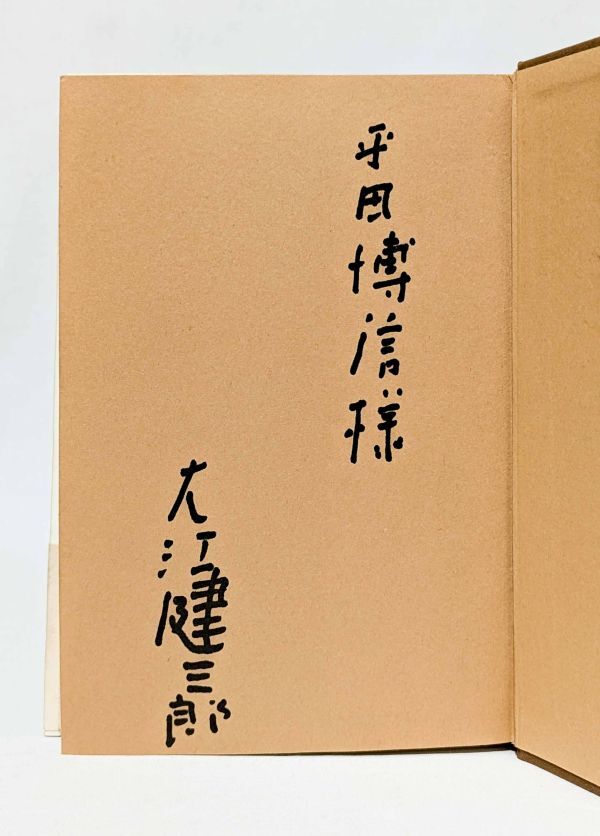 平田博信様
大江健三郎